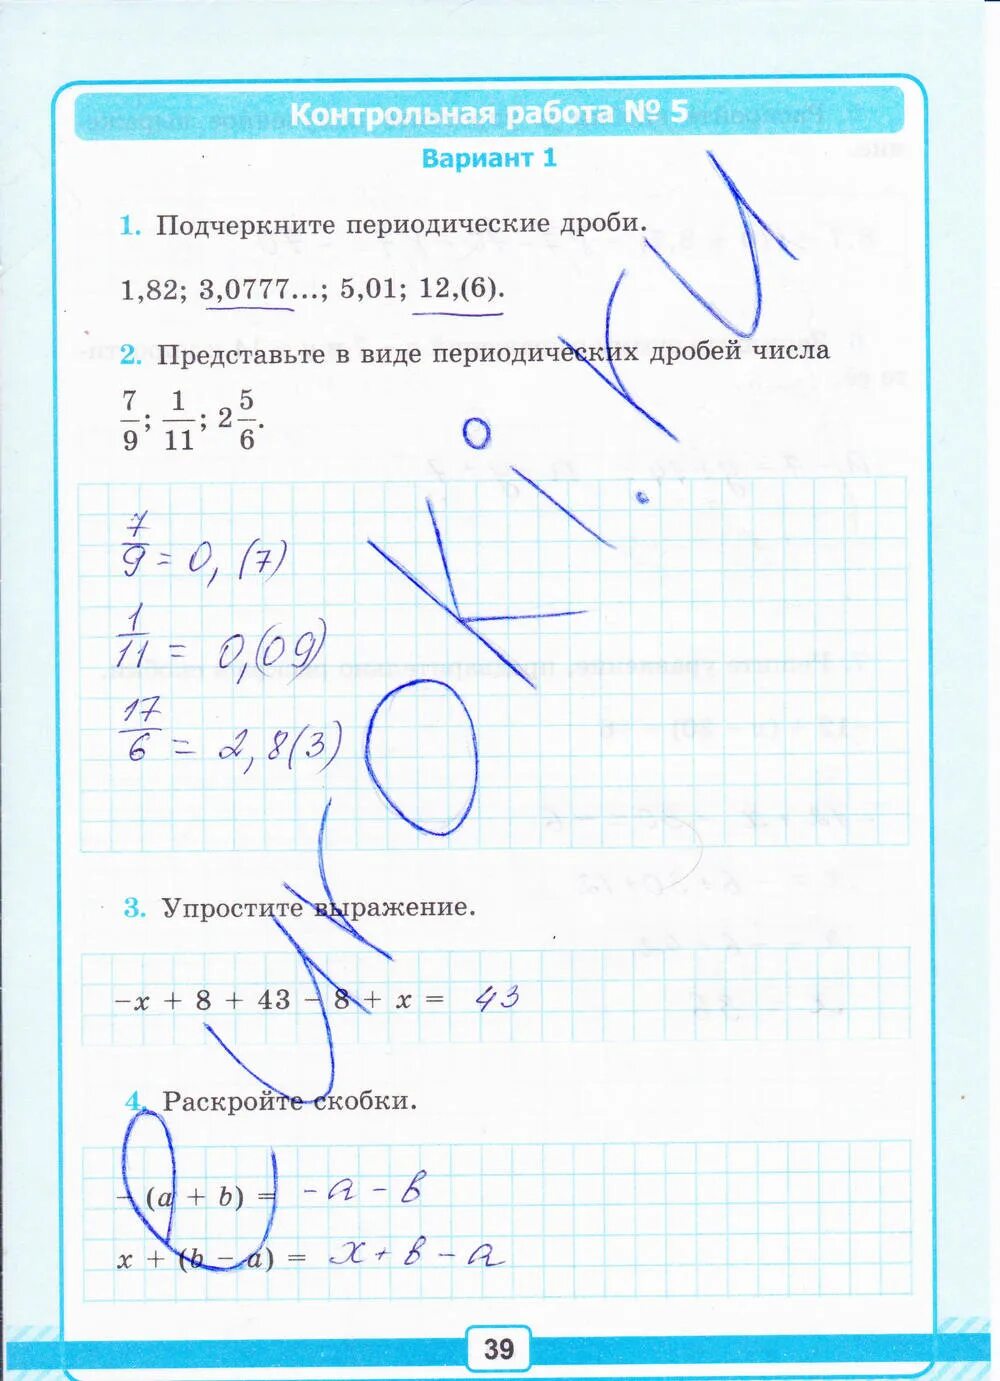 Контрольная работа № 5
Вариант 1
1. Подчеркните периодические дроби.
1,82; 3,0777...; 5,01; 12,(6).
2. Представьте в виде периодических дробей числа
7/9; 1/11; 2 5/6.
7/9 = 0,(7)
1/11 = 0,(09)
17/6 = 2,8(3)
3. Упростите выражение.
-x + 8 + 43 - 8 + x = 43
4. Раскройте скобки.
- (a + b) = -a - b
x + (b - a) = x + b - a
39